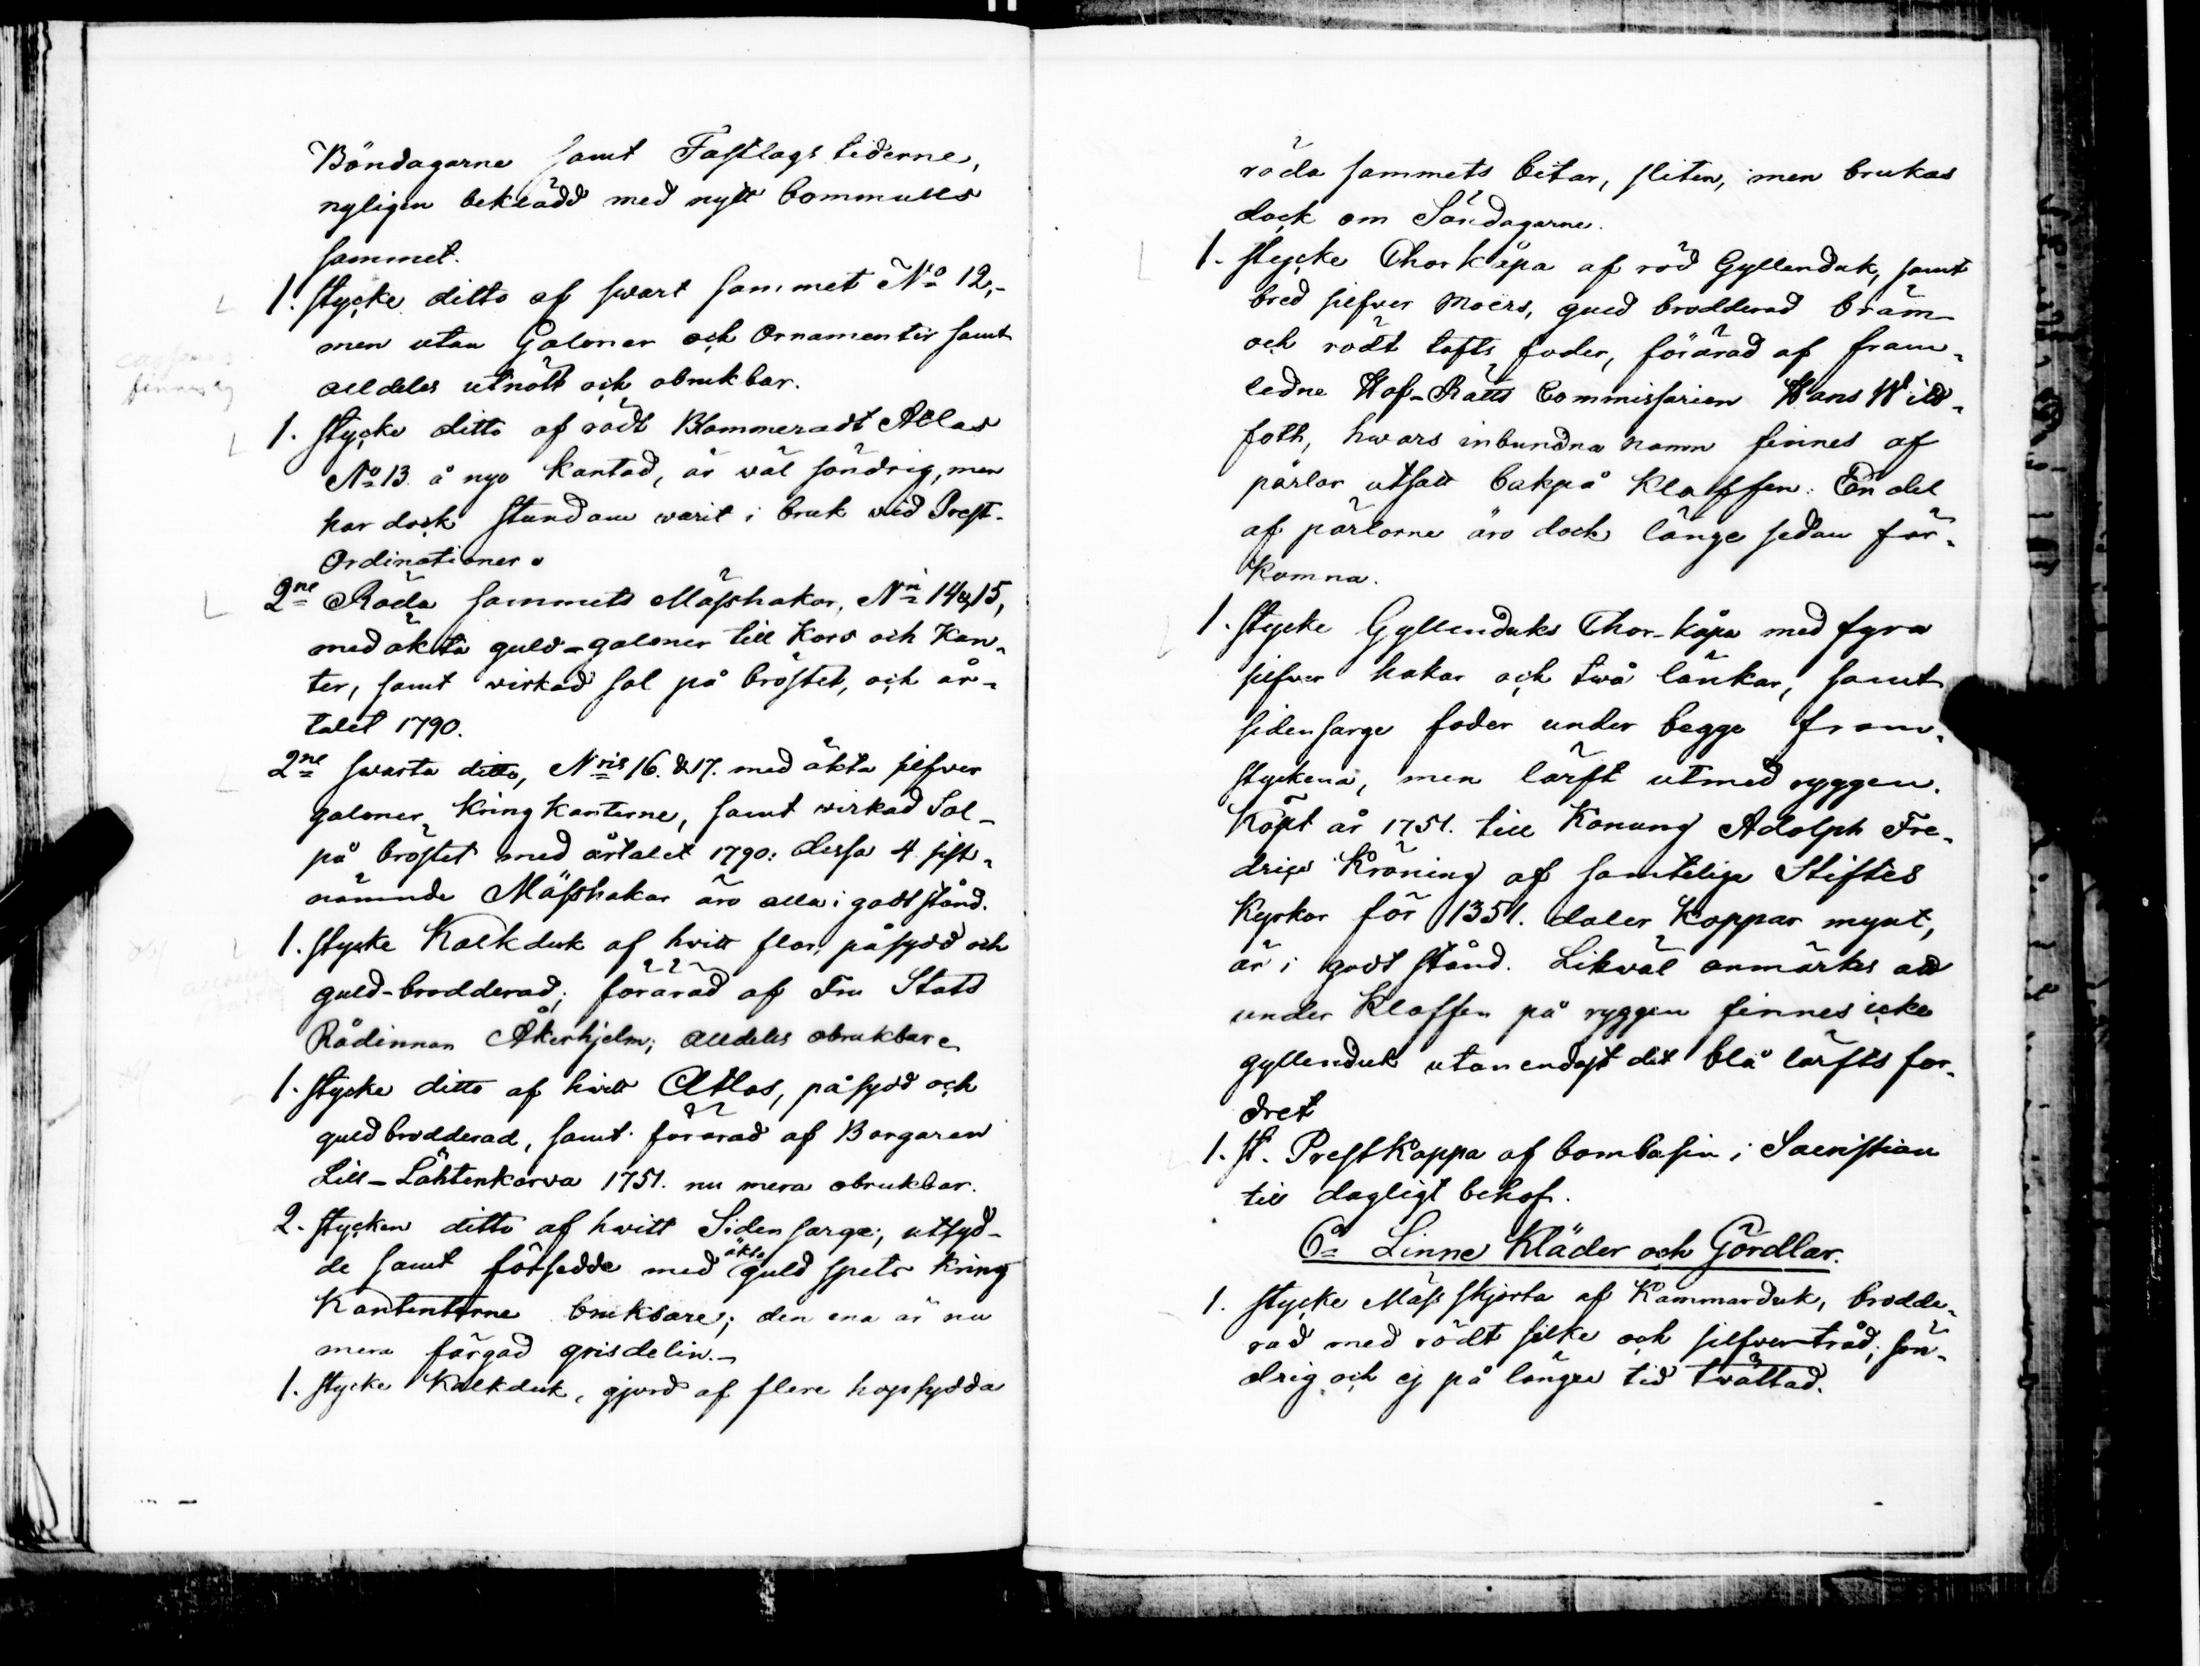 Böndagarne samt Fastlags tiderne,
nyligen beklädd med nytt bommulls
sammet.
1. stycke ditto af swart sammet No 12,-
men utan Galoner och Ornamenter samt
alldeles utnött och obrukbar.
1. stycke ditto af rödt Blommeradt Atlas
No 13 å nyo kantad, är wäl söndrig, men
har dock stundom warit i bruk wid Prest-
Ordinationer.
2ne Röda sammets Mässhakar, Nri 14 & 15,
med äkta guld-galoner till Kors och Kan-
ter, samt wirkad sol på bröstet, och år-
talet 1790.
2ne swarta ditto, Nris 16. & 17. med äkta silfwer
galoner kring kanterne, samt wirkad Sol-
på bröstet med årtalet 1790: dessa 4 sist-
nämnde Mässhakar äro alla i godt stånd.
1. stycke Kalkduk af hwitt flor, påsydd och
guld-brodderad; förärad af Fru Stats
Rådinnan Åkerhjelm; alldeles obrukbare
1. stycke ditto af hwitt Atlas, påsydd och
guldbrodderad, samt förärad af Borgaren
Lill-Lähtenkorva 1751. nu mera obrukbar.
2. stycken ditto af hwitt Siden sarge, utsyd-
de samt försedde med äkta guld spets kring
Kantenterne brukbare; den ena är nu
mera färgad grisdelin.-
1. stycke Kalkduk, gjord af flere hopsydda
röda sammets bitar, sliten, men brukas
dock om Söndagarne.
1. stycke Chorkåpa af röd Gyllenduk, samt
bred silfwer moërs, guld brodderad bräm
och rödt tafts foder, förärad af fram-
ledne Hof-Rätts Commissarien Hans Wild-
foth, hwars inbundna namn finnes af
pärlor utsatt bakpå Klaffen. En del
af pärlorne äro dock länge sedan för-
komna.
1. stycke Gyllenduks Chor-kåpa med fyra
silfwer hakar och twå länkar, samt
sidensarge foder under begge fram-
styckena, men lärft utmed ryggen.
Köpt år 1751. till Konung Adolph Fre-
drics Kröning af samtelige Stiftes
Kyrkor för 1351. daler Koppar mynt,
är i godt stånd. Likwäl anmärkes att
under Klaffen på ryggen finnes icke
gyllenduk utan endast det blå lärfts fo-
dret
1. st. Prestkappa af bombasin i Sacristian
till dagligt behof.
6o Linne Kläder och Gördlar.
1. stycke Mäss skjorta af Kammarduk, brodde-
rad med rödt silke och silfwertråd; sön-
drig och ej på längre tid twättad.